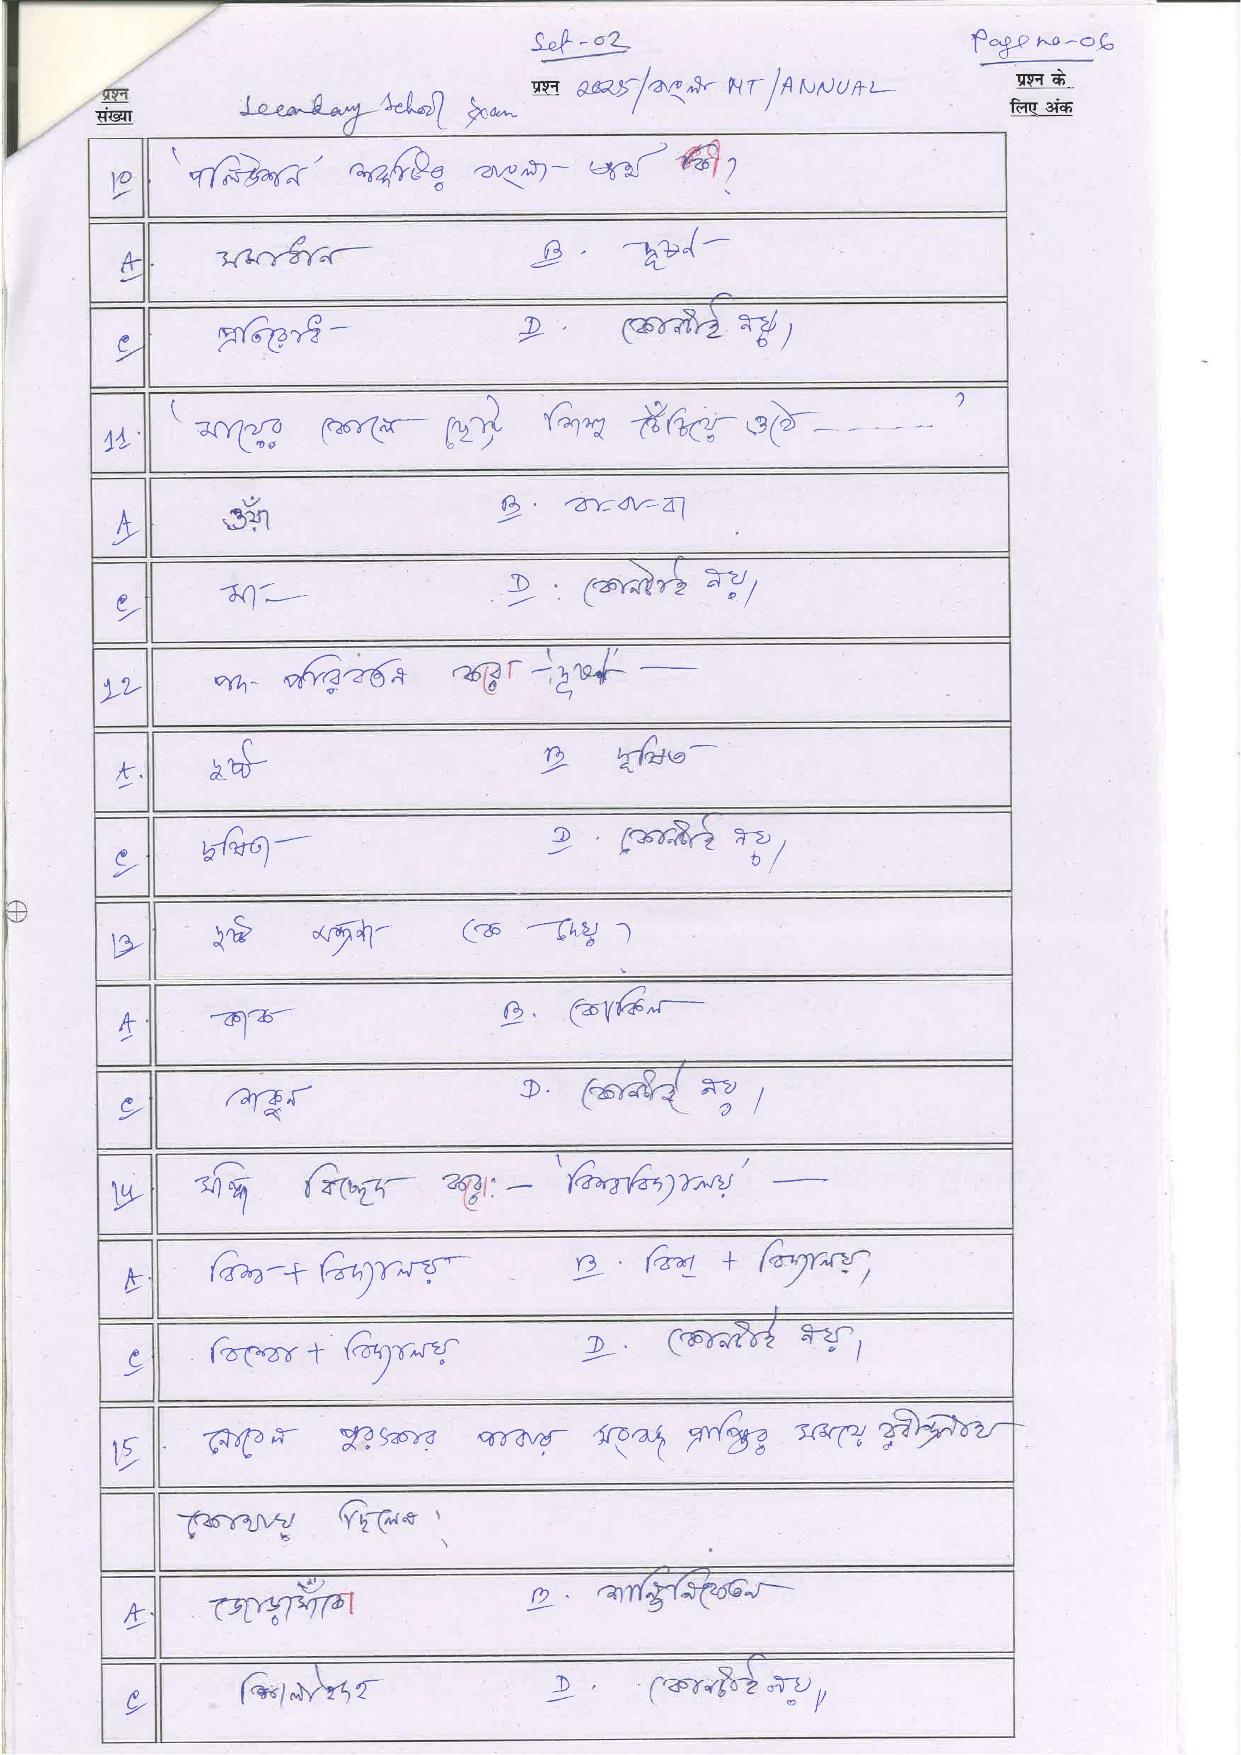 Set-02
Page no-06
प्रश्न संख्या
Secondary School Exam
प्रश्न 2025/বাংলা MT/ANNUAL
प्रश्न के लिए अंक
10 'পলিউশন' শব্দটির বাংলা অর্থ কী?
A. সমাধান B. দূষণ
C প্রতিরোধ D. কোনটাই নয়।
11. 'মায়ের কোলে ছোট্ট শিশু চেঁচিয়ে ওঠে ------'
A ওঁয়া B. বা-বা-বা
C মা- D. কোনটাই নয়।
12 পদ পরিবর্তন করো - 'দূষণ' —
A. দুষ্ট B দূষিত
C দুষিতা D. কোনটাই নয়।
13 দুষ্ট মন্ত্রণা কে দেয়?
A. কাক B. কোকিল
C শকুন D. কোনটাই নয়।
14 সন্ধি বিচ্ছেদ করো: - 'বিশ্ববিদ্যালয়' —
A. বিশ্ব + বিদ্যালয় B. বিশ্ + বিদ্যালয়,
C বিশ্বো + বিদ্যালয় D. কোনটাই নয়।
15. নোবেল পুরস্কার পাবার সংবাদ প্রাপ্তির সময়ে রবীন্দ্রনাথ
কোথায় ছিলেন?
A. জোড়াসাঁকো B. শান্তিনিকেতন
C শিলাইদহ D. কোনটাই নয়।